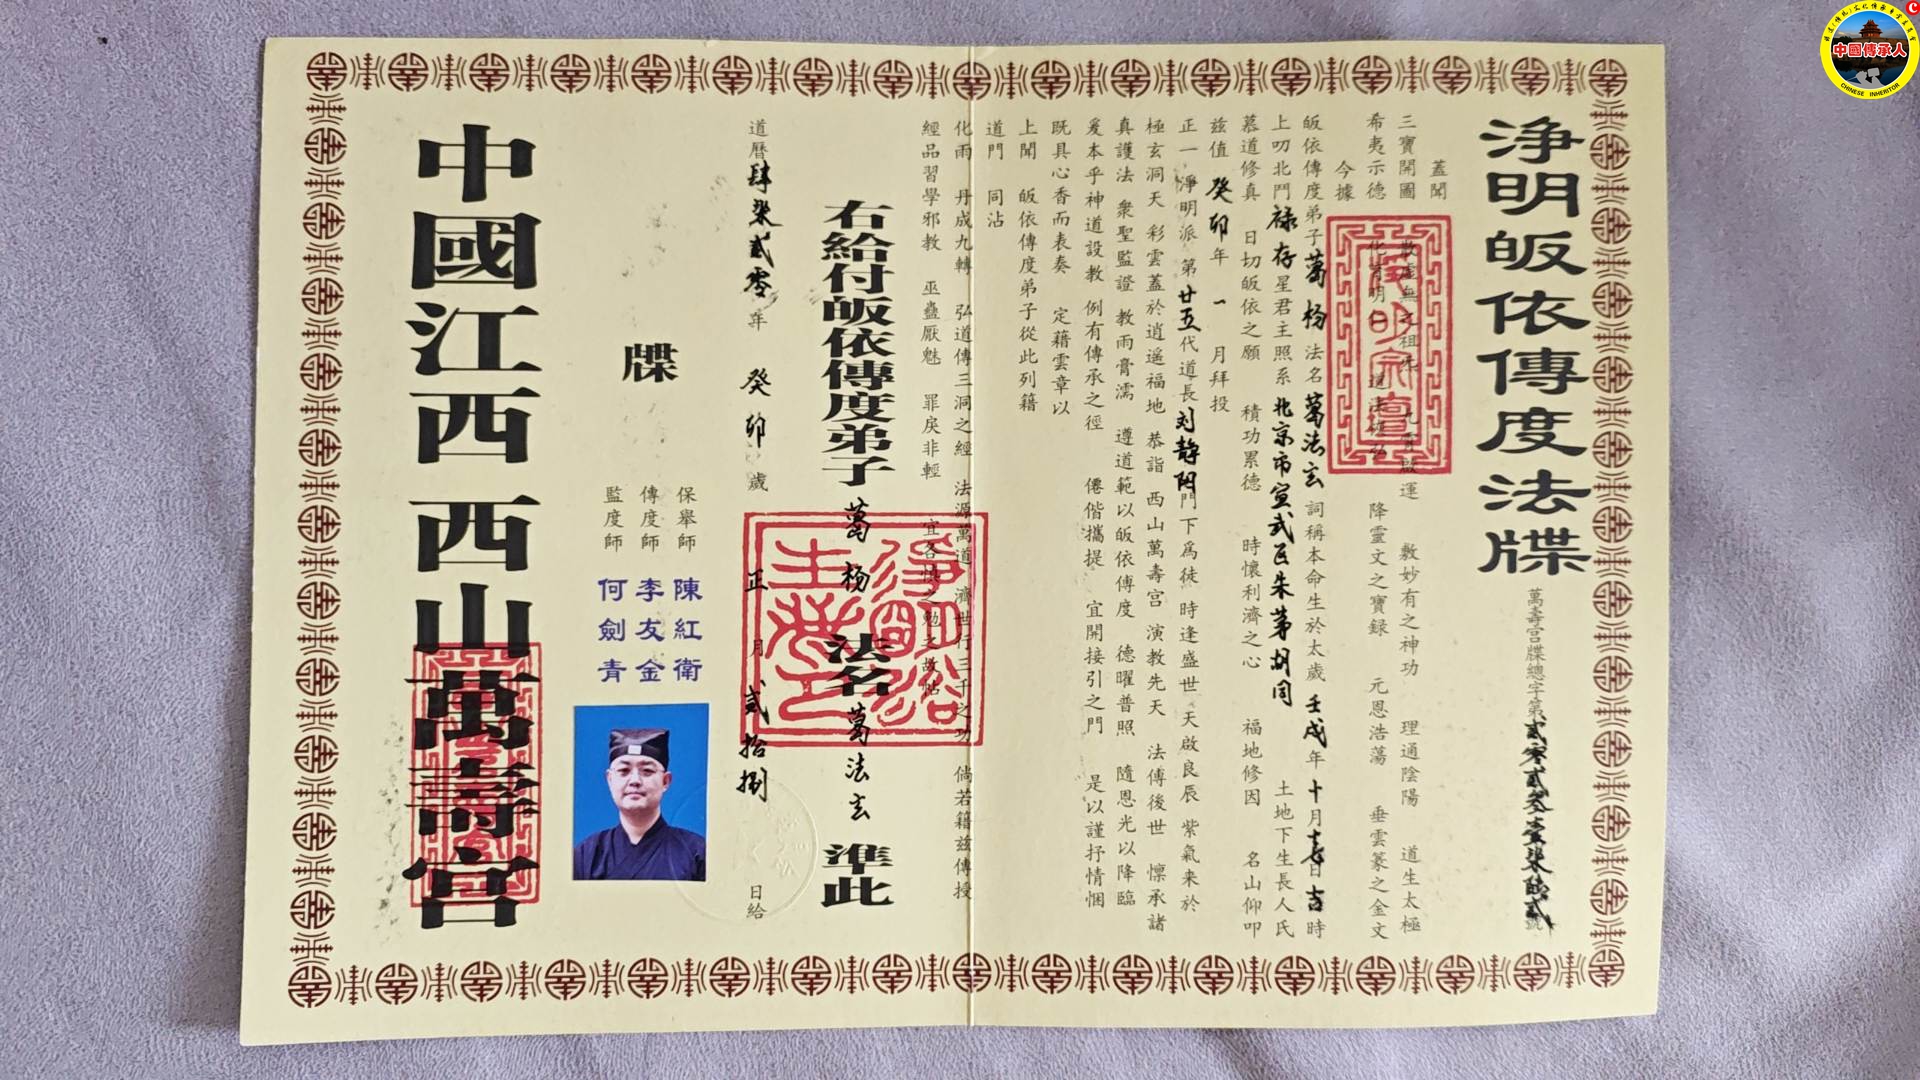 淨明皈依傳度法牒
萬壽宮牒總字第貳零貳叁壹柒陆貳號
蓋聞
三寶開圖 數虛無之祖炁 九霄啟運 敷妙有之神功 理通陰陽 道生太極
希夷示德 化育明仁 道法 降靈文之寶録 元恩浩蕩 垂雲篆之金文
今據
皈依傳度弟子葛杨 法名葛法玄 詞稱本命生於太歲壬戌年十月 日吉時
上叩北鬥禄存星君主照系北京市宣武区朱茅胡同 土地下生長人氏
慕道修真 日切皈依之願 積功累德 時懷利濟之心 福地修因 名山仰叩
兹值癸卯年一月拜投
正一淨明派第廿五代道長刘静阳門下爲徒 時逢盛世 天啟良辰 紫氣来於
極玄洞天 彩雲蓋於逍遥福地 恭詣 西山萬壽宮 演教先天 法傳後世 懔承諸
真護法 衆聖監證 教雨膏濡 遵道範以皈依傳度 德曜普照 隨恩光以降臨
爰本乎神道設教 例有傳承之徑 僊偕攜提 宜開接引之門 是以謹抒情悃
既具心香而表奏 定藉雲章以
上聞 皈依傳度弟子從此列籍
道門 同沾
化雨 丹成九轉 弘道傳三洞之經 法源萬道 濟世行三千之功 倘若籍兹傳授
經品習學邪教 巫蠱厭魅 罪戾非輕 宜各慎之勉之故帖
右給付皈依傳度弟子葛杨 法名葛法玄 準此
道曆肆柒貳零年 癸卯歲 正月貳拾捌日給
牒
保舉師 陳紅衛
傳度師 李友金
監度師 何劍青
中國江西西山萬壽宮
中國傳承人
CHINESE INHERITOR